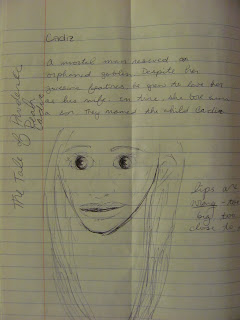 Cadiz
A mortal man rescued an
orphaned goblin. Despite her
features, he grew to love her
as his wife. In time, she bore him
a son. They named the child Cadiz.
The Tale of
Lips are
wrong -
big, too
close to